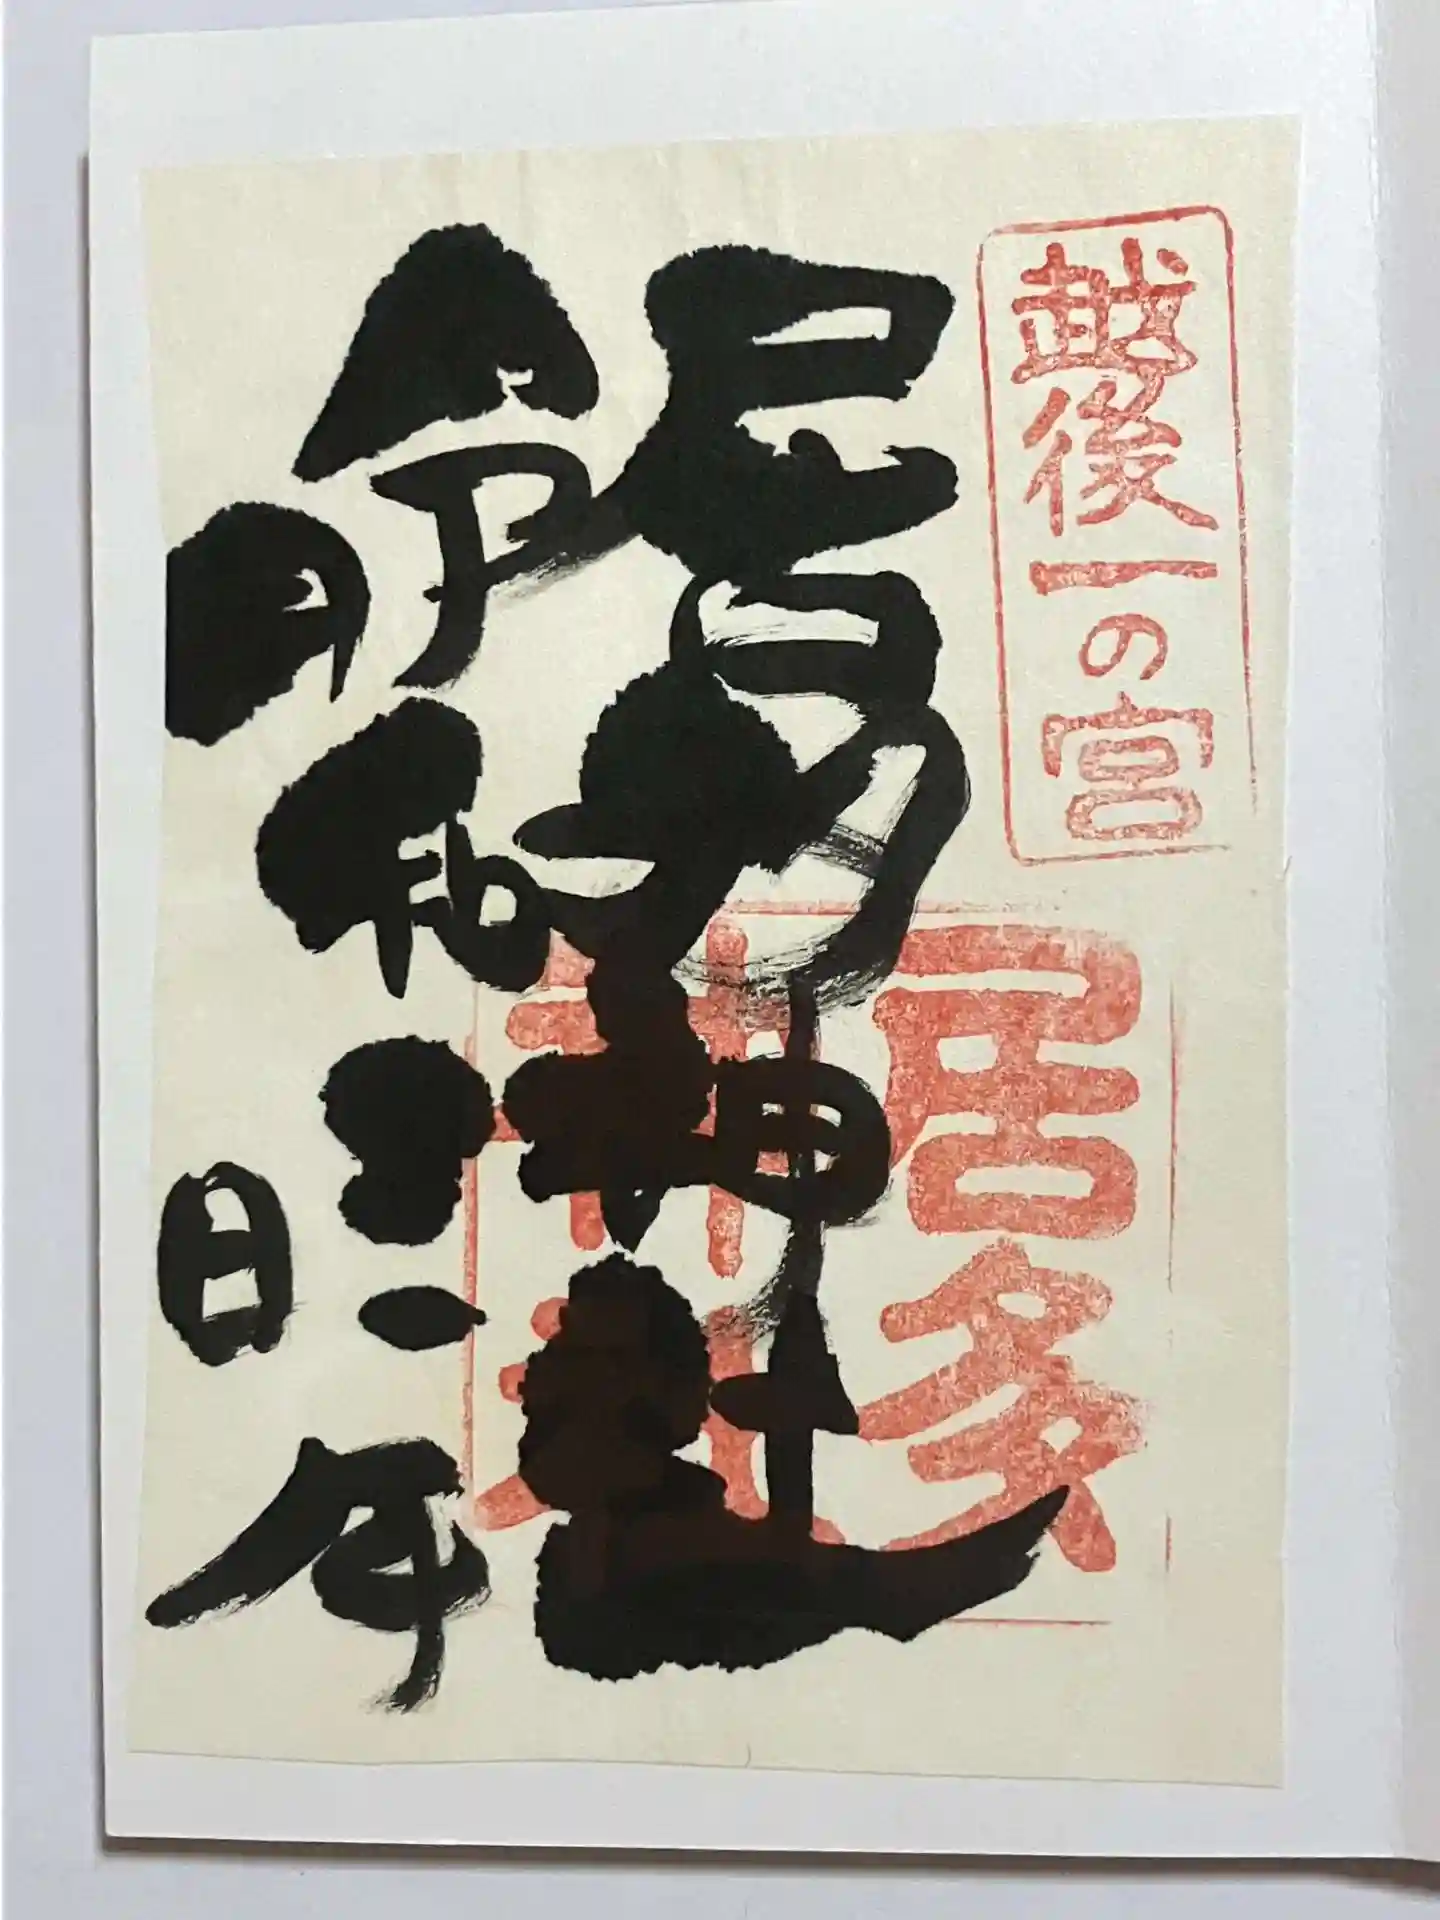 越後一の宮
居多神社
居多神社
令和三年
月
日